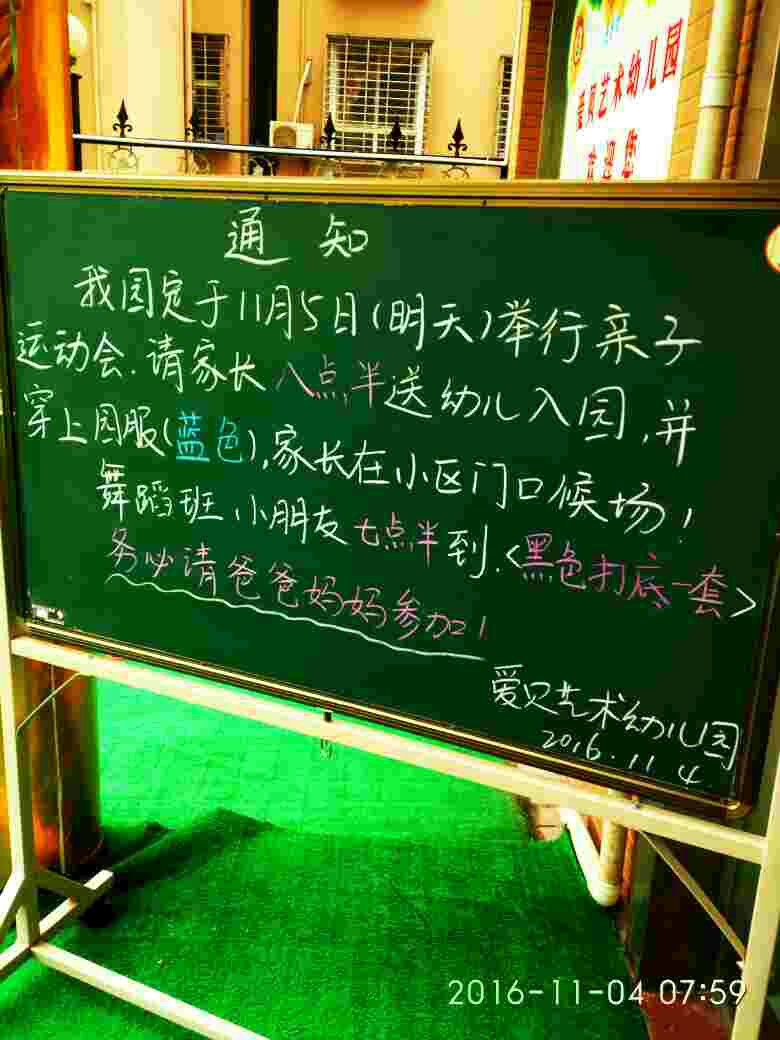 爱贝艺术幼儿园
欢迎您
通知
我园定于11月5日(明天)举行亲子
运动会.请家长八点半送幼儿入园,并
穿上园服(蓝色),家长在小区门口候场!
舞蹈班小朋友七点半到.<黑色打底一套>
务必请爸爸妈妈参加!
爱贝艺术幼儿园
2016.11.4
2016-11-04 07:59